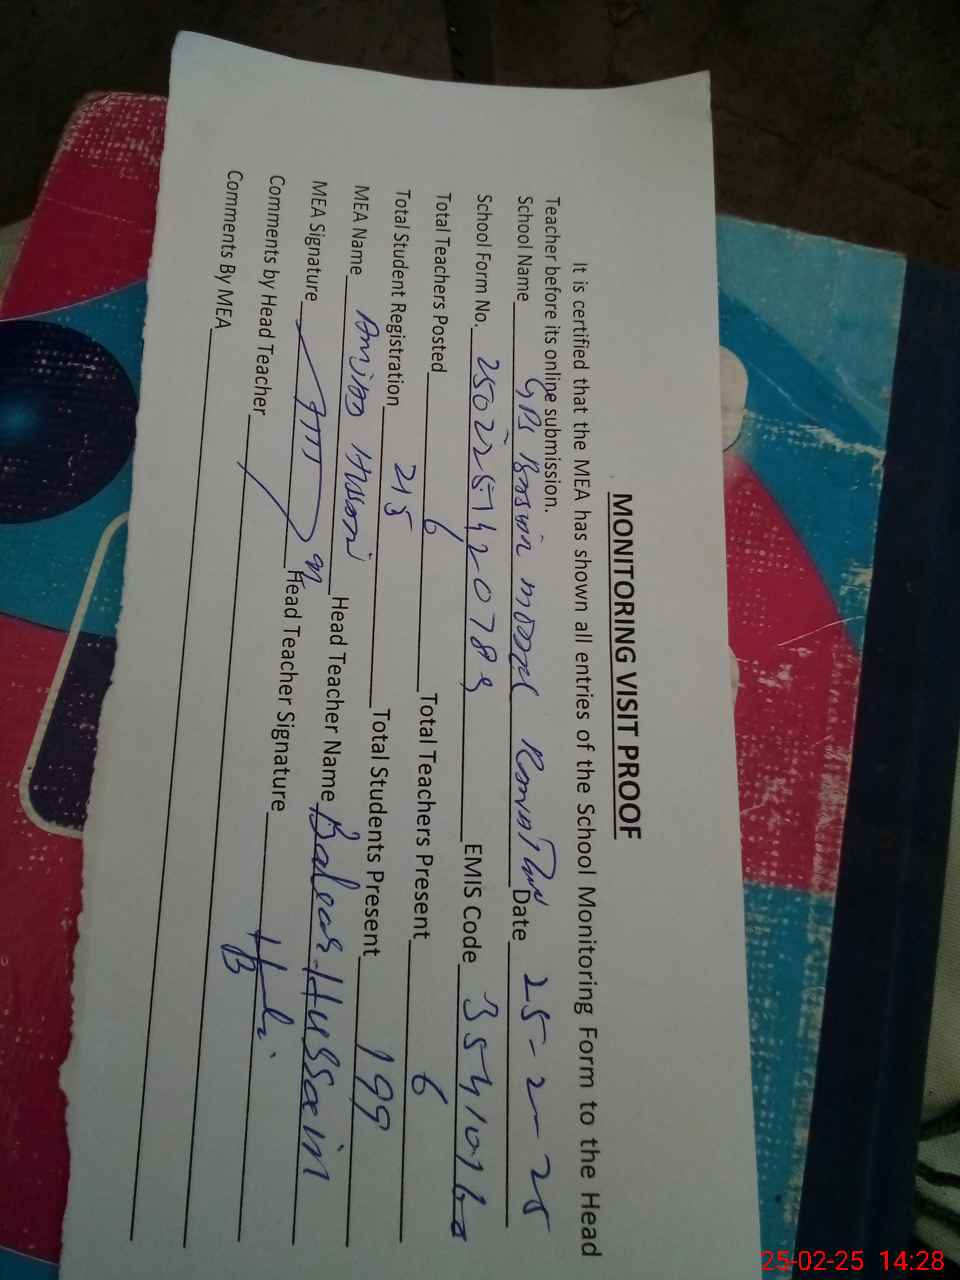 MONITORING VISIT PROOF
It is certified that the MEA has shown all entries of the School Monitoring Form to the Head
Teacher before its online submission.
School Name GPS model Date 25-2-25
School Form No. EMIS Code
Total Teachers Posted 6 Total Teachers Present 6
Total Student Registration 215 Total Students Present 199
MEA Name Head Teacher Name Hussain
MEA Signature Head Teacher Signature
Comments by Head Teacher
Comments By MEA
25-02-25 14:28